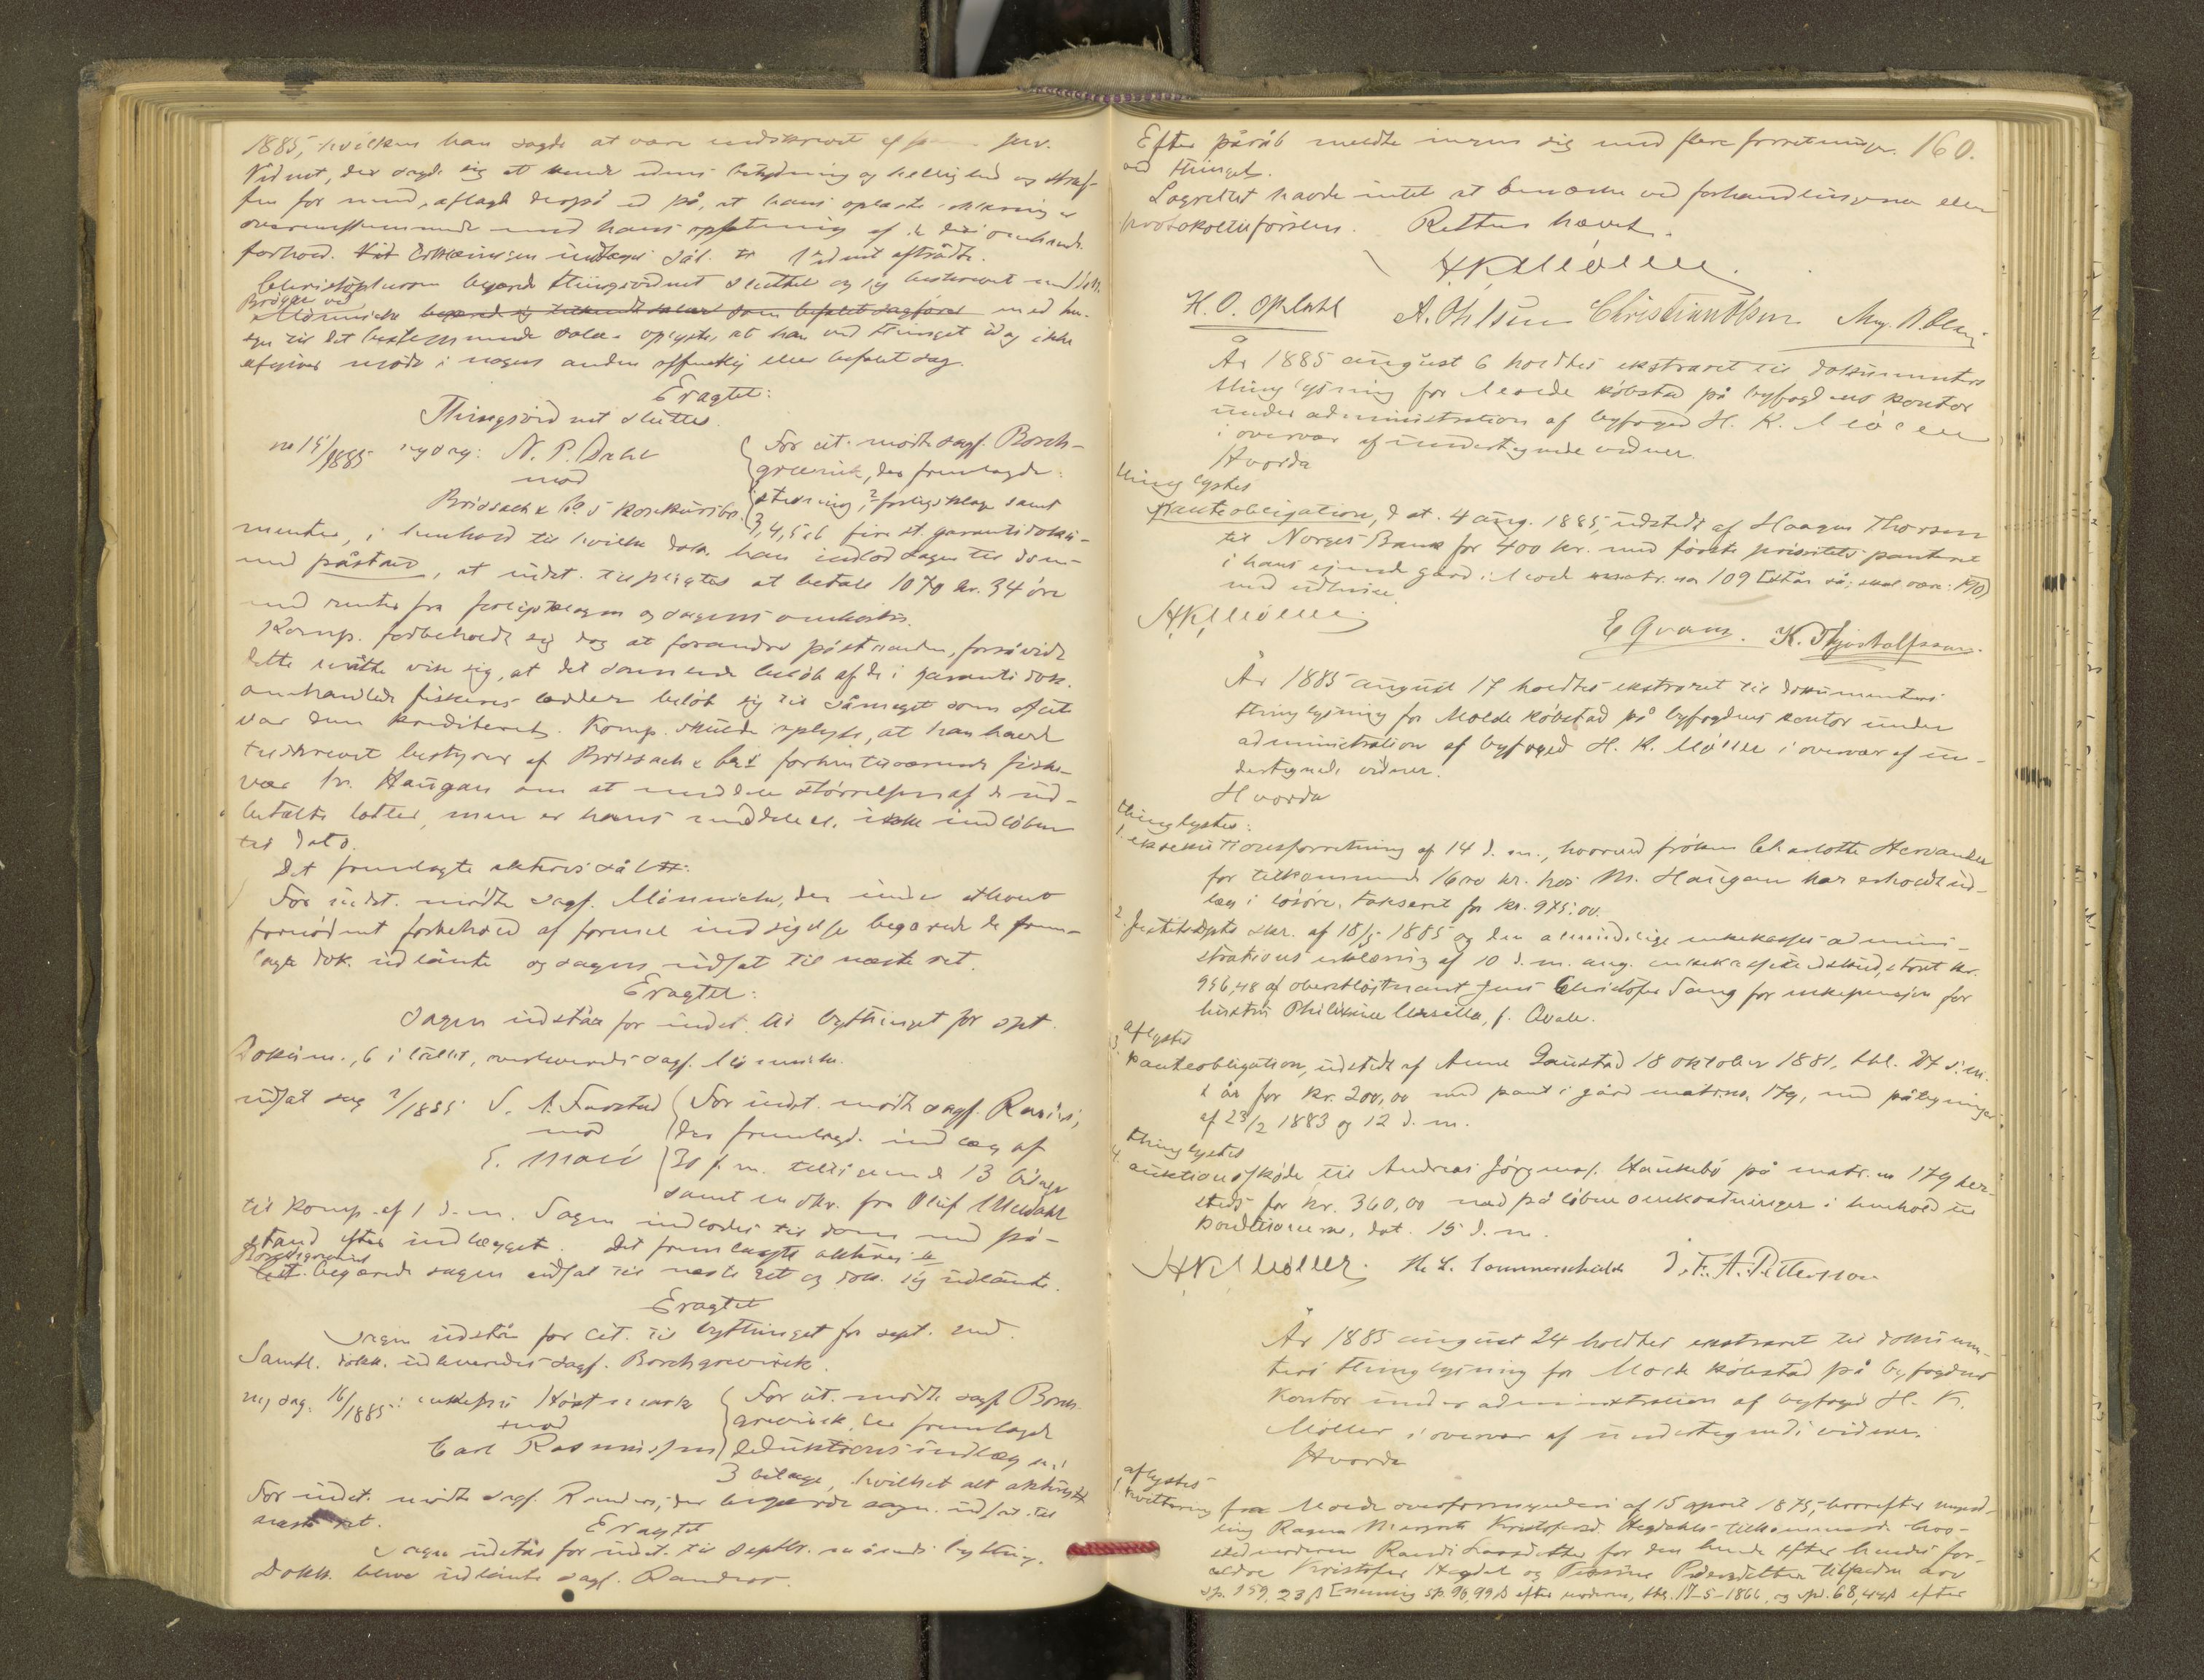 1885, hvilken han sagde at være indskrevet af ham selv.
Vidnet, der sagde sig at kende edens betydning og hellighed og straf-
fen for mened, aflagde derpå ed på, at hans oplæste erklæring er
overensstemmende med hans opfatning af de deri omhandl.
forhold. Erklæringen indtages Vidnet aftrådte.
Christophersen begærede thingsvidnet sluttet og sig beskrevet
Brügge ved
Mönniche begærede sig tilkendt salær som befalet sagförer med hen-
syn til det bestemmende salær oplyste, at han ved thinget idag ikke
afgiver møde i nogen anden offentlig eller befalet sag.
Eragtet:
Thingsvidnet sluttes.
no 15/1885 ny sag: N. P. Dahl
mod
Brissach & Co s konkursbo.
For cit. mödte sagf. Borch-
grevink, der fremlagde
stevning, 2 forligsklage samt
3, 4, 5 & 6 fire st. garantidoku-
menter, i henhold til hvilke dok. han indlod sagen til dom
med påstand, at indst. tilpligtes at betale 1070 kr. 34 öre
med renter fra forligsklagen og sagens omkostn.
Komp. forbeholdt sig dog at forandre påstanden, forsåvidt
dette måtte vise sig, at det sammende beløb af de i garantidok.
omhandlede fiskeres lodder beløb sig til såmeget som af cit
var dem krediteret. Komp. skulde oplyse, at han havde
tilskrevet bestyrer af Brissach & Co s forhenværende fiske-
vær hr. Haugan om at meddele størrelsen af de ud-
betalte lotter, men er hans meddelelse ikke indløben
til dato.
Det fremlagte akteres sål.
For indst. mödte sagf. Mönniche, der under ethvert
fornødent forbehold af formel indsigelse begærede de frem-
lagte dok. udlånte og sagen udsat til næste ret.
Eragtet:
Sagen udstår for indst. til bythinget for sept.
Dokum., 6 i tallet, overleveredes sagf. Mönniche.
udsat sag 2/1885 S. A. Farstad
mod
E. Moe
For indst. mödte sagf. Randers,
der fremlagde indlæg af
30 f. m. tilligemed 13 bilage
samt en skr. fra Oluf Meidahl
til komp. af 1 d. m. Sagen indlodes til dom med på-
stand efter indlægget. Det fremlagte akteres
Borchgrevink
Cit. begærede sagen udsat til næste ret og dok. sig udlånte.
Eragtet
Sagen udstår for cit. til bythinget for sept. md.
Samtl. dokk. udleveredes sagf. Borchgrevink.
ny sag. 16/1885: enkefru Höstmark
mod
Carl Rasmussen
For cit. mödte sagf Borch
grevink, der fremlagde
deduktions indlæg m.
3 bilage, hvilket alt akteres
For indst. mødte sagf. Randers, der begærede sagen udsat til
næste ret.
Eragtet
Sagen udstår for indst. til septbr. måneds bything.
Dokk. bleve udlånte sagf. Randers.
Efter påråb meldte ingen sig med flere forretninger 160.
ved thinget.
Lagrettet havde intet at bemærke ved forhandlingerne eller
protokolførslen. Retten hævet.
H K Möller.
H. O. Opdahl A. Ohlsen Christian Olsen
År 1885 august 6 holdtes ekstraret til dokumenters
thinglysning for Molde købstad på byfogdens kontor
under administration af byfoged H. K. Möller
i overvær af undertegnede vidner.
Hvorda
thinglystes
Panteobligation, dat. 4 aug. 1885, udstedt af Haagen Thorsen
til Norges Bank for 400 kr. med første prioritets panteret
i hans ejende gård i Molde matr. no 109 [står så; skal være: 190)
med udhuse.
H K Möller
E Qvam. K. Thjostolfssen.
År 1885 august 17 holdtes ekstraret til dokumenters
thinglysning for Molde købstad på byfogdens kontor under
administration af byfoged H. K. Möller i overvær af un-
dertegnede vidner.
Hvorda
thinglystes:
1. eksekutionsforretning af 14 d. m., hvorved frøken Charlotte Hervander
for tilkommende 1600 kr. hos M. Haugan har erholdt ud-
læg i løsöre, takseret for kr. 975.00.
2. Justitsdepts skr. af 18/5 1885 og den almindelige enkekasses admini-
strations erklæring af 10 d. m. ang. enkekasseindskud, stort kr.
956,48 af oberstløjtnant Jens Christofer Vang for enkepension for
hustru Philippine Ursilla, f. Qvale.
aflystes
3. Panteobligation, udstedt af Anne Gaustad 18 oktober 1881, thl.
s. år for kr. 200,00 med pant i gård matr. no. 179, med påtegninger
af 23/2 1883 og 12 d. m.
thinglystes
4. auktionsskøde til Andreas Jörgens. Haukebö på matr. no 179 her-
steds for kr. 360,00 med påløbne omkostninger i henhold til
konditionerne, dat. 15 d. m.
H K Möller. H. L. Sommerschield J. F. A. Pettersson
År 1885 august 24 holdtes ekstraret til dokumen-
ters thinglysning for Molde købstad på byfogdens
kontor under administration af byfoged H. K.
Möller i overvær af undertegnede vidner.
Hvorda
aflystes
1. kvittering fra Molde overformynderi af 15 april 1875, hvorefter myndl-
ing Ragna Margrete Kristofersd. Hegdahls tilkommende hos
stedmoderen Randi Larsdatter for den hende efter hendes for-
ældre Kristofer Hegdal og Pedersdatter tilfaldne arv
sp. 159, 23 β [nemlig sp. 90,99 β efter moderen, thl. 17-5-1866, og spd. 68,44 β efter